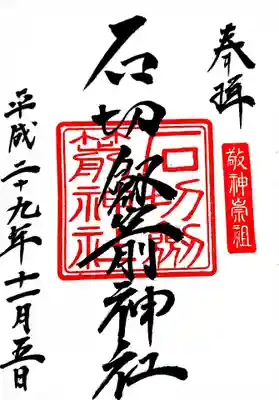 奉拝
敬神崇祖
石切劔箭神社
平成二十九年十一月五日